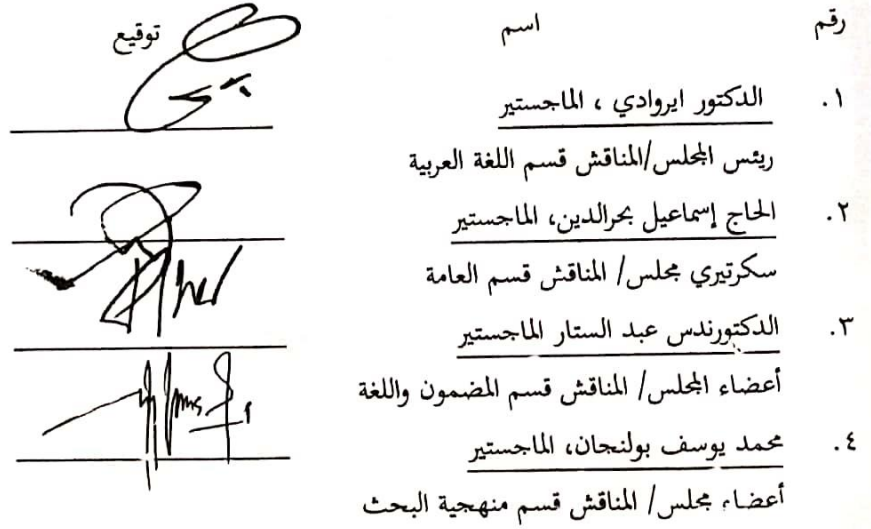 رقم اسم توقيع
١. الدكتور ايروادي ، الماجستير
ريئس المجلس/المناقش قسم اللغة العربية
٢. الحاج إسماعيل بحرالدين، الماجستير
سكرتيري مجلس/ المناقش قسم العامة
٣. الدكتورندس عبد الستار الماجستير
أعضاء المجلس/ المناقش قسم المضمون واللغة
٤. محمد يوسف بولنجان، الماجستير
أعضاء مجلس/ المناقش قسم منهجية البحث